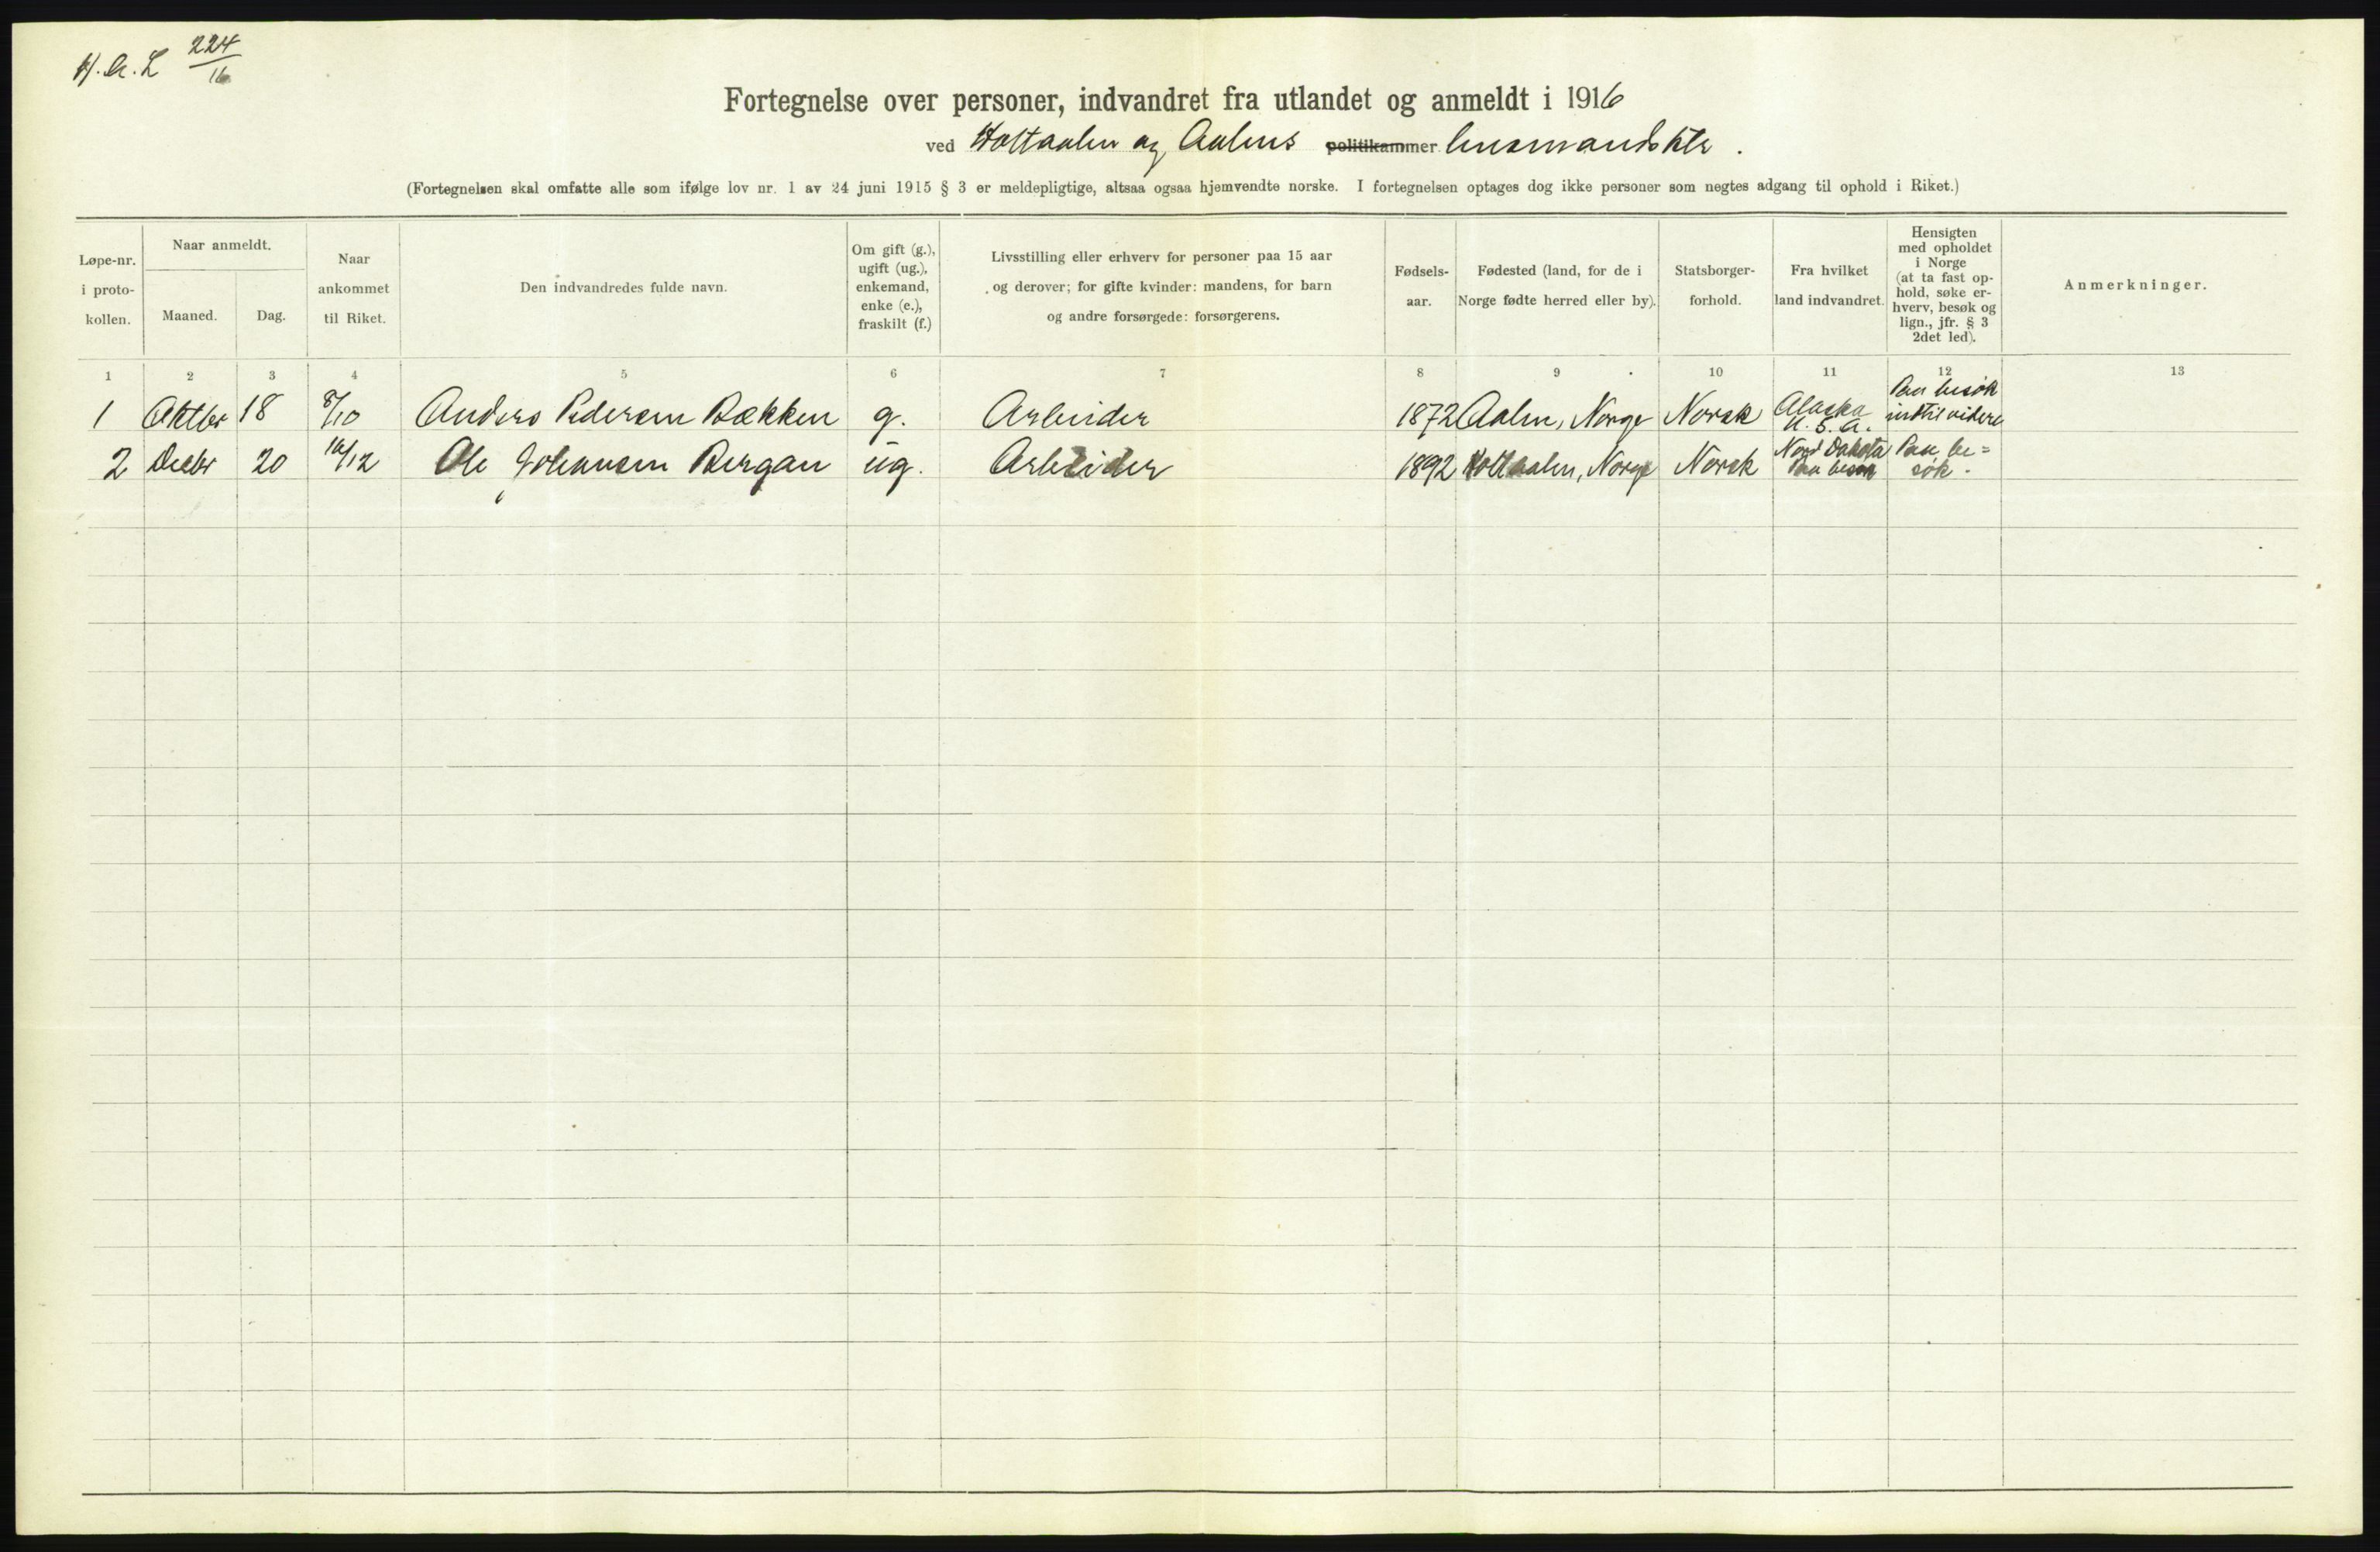 H.A.L 224/16
Fortegnelse over personer, indvandret fra utlandet og anmeldt i 1916
ved Holtaalen og Aalens politikammer lensmandsktr.
(Fortegnelsen skal omfatte alle som ifølge lov nr. 1 av 24 juni 1915 § 3 er meldepligtige, altsaa ogsaa hjemvendte norske. I fortegnelsen optages dog ikke personer som negtes adgang til ophold i Riket.)
Løpe-nr.
i proto-
kollen.
Naar anmeldt.
Maaned.
Dag.
Naar
ankommet
til Riket.
Den indvandredes fulde navn.
Om gift (g.),
ugift (ug.),
enkemand,
enke (e.),
fraskilt (f.)
Livsstilling eller erhverv for personer paa 15 aar
og derover; for gifte kvinder: mandens, for barn
og andre forsørgede: forsørgerens.
Fødsels-
aar.
Fødested (land, for de i
Norge fødte herred eller by).
Statsborger-
forhold.
Fra hvilket
land indvandret.
Hensigten
med opholdet
i Norge
(at ta fast op-
hold, søke er-
hverv, besøk og
lign., jfr. § 3
2det led).
Anmerkninger.
1 2 3 4 5 6 7 8 9 10 11 12 13
1 Oktbr 18 8/10 Anders Pedersen Bækken g. Arbeider 1872 Aalen, Norge Norsk Alaska U.S.A. Paa besøk indtil videre
2 Decbr 20 16/12 Ole Johansen Bergan ug. Arbeider 1892 Holtaalen, Norge Norsk Nord Dakota Paa besøk Paa be=
søk.